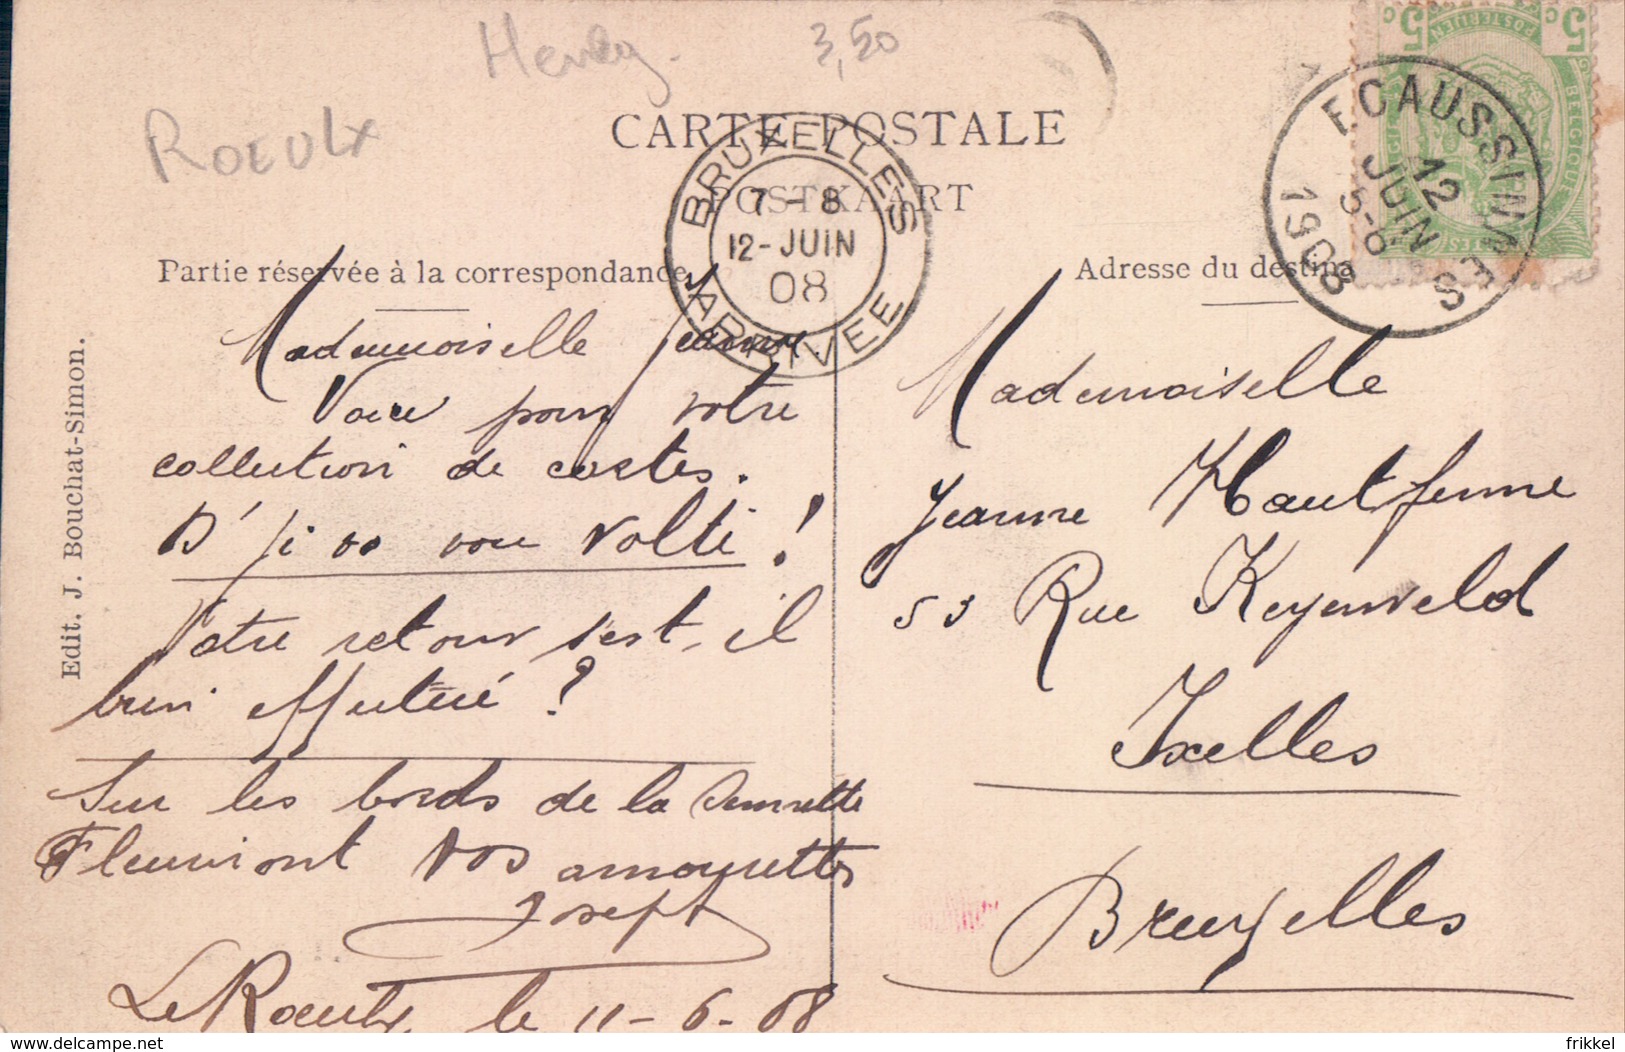 Henry.
3,50
ROEULX
CARTE POSTALE
POSTKAART
Partie réservée à la correspondance
Adresse du destina
Edit. J. Bouchat-Simon.
BRUXELLES
7-8
12-JUIN
08
ARRIVEE
ECAUSSINNES
12
JUIN
5-6
S
1908
5 C
POSTERIJEN
C 5
BELGIQUE
Mademoiselle Jeanne.
Voici pour votre
collection de cartes.
volti!
Votre retour s'est-il
bien effectué?
Sur les bords de la Sennette
Fleuriront vos amourettes
Joseph
Le Roeulx le 11-6-08
Mademoiselle
Jeanne Hautfenne
53 Rue Keyenveld
Ixelles
Bruxelles
© delcampe.net
frikkel